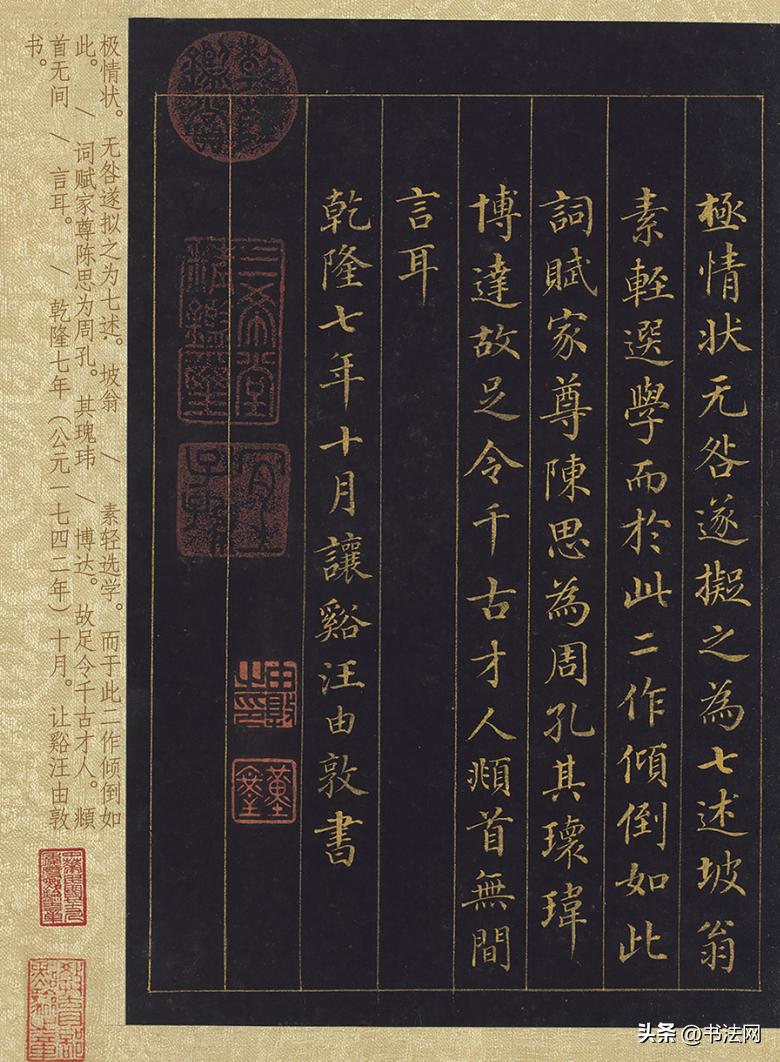 極情状无咎遂擬之為七述坡翁
素輕選學而於此二作傾倒如此
詞賦家尊陳思為周孔其瓌瑋
博達故足令千古才人頫首無間
言耳
乾隆七年十月讓谿汪由敦書
极情状。无咎遂拟之为七述。坡翁 / 素轻选学。而于此二作倾倒如
此。 / 词赋家尊陈思为周孔。其瑰玮 / 博达。故足令千古才人。頫
首无间 / 言耳。 / 乾隆七年（公元一七四二年）十月。让谿汪由敦
书。
三希堂
精鑑璽
宜子
孫
頭条 @书法网